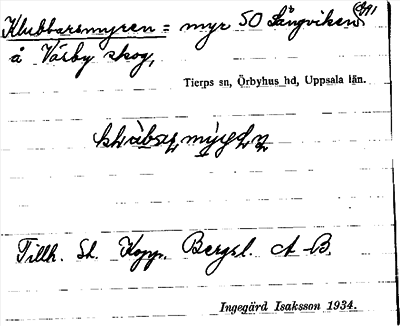 Klubbarsmyren = myr SO Långviken
å Västby skog,
Tierps sn, Örbyhus hd, Uppsala län.
Tillh. St. Kopp. Bergsl. A-B.
Ingegärd Isaksson 1934.